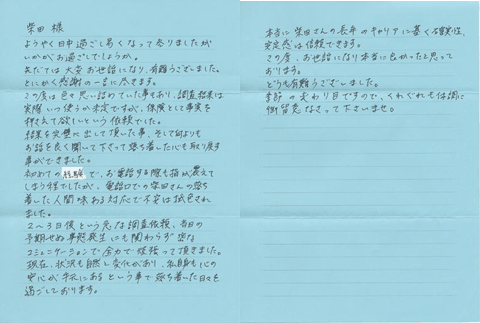 柴田 様
ようやく日中過ごし易くなって参りましたが
いかがお過ごしでしょうか。
先だっては大変お世話になり、有難うございました。
とにかく感謝の一言に尽きます。
この度は色々思い詰めていた事もあり、調査結果は
実際いつ使うか未定ですが、保険として事実を
押さえて欲しいという依頼でした。
結果を完璧に出して頂いた事、そして何よりも
お話を良く聞いて下さって落ち着いた心も取り戻す
事ができました。
初めての経験で、お電話する際も指が震えて
しまう程でしたが、電話口での柴田さんの落ち
着いた人間味ある対応で不安は払色され
ました。
2～3日後という急な調査依頼、当日の
予期せぬ事態発生にも関わらず密な
コミュニケーションで全力で頑張って頂きました。
現在、状況も自然と変化があり、私自身も心の
安心が手元にあるという事で落ち着いた日々を
過ごしております。
本当に柴田さんの長年のキャリアに基く確実性、
安定感は信頼できます。
この度、お世話になり本当に良かったと思って
おります。
どうも有難うございました。
季節の変わり目ですので、くれぐれも体調に
御留意なさって下さいませ。